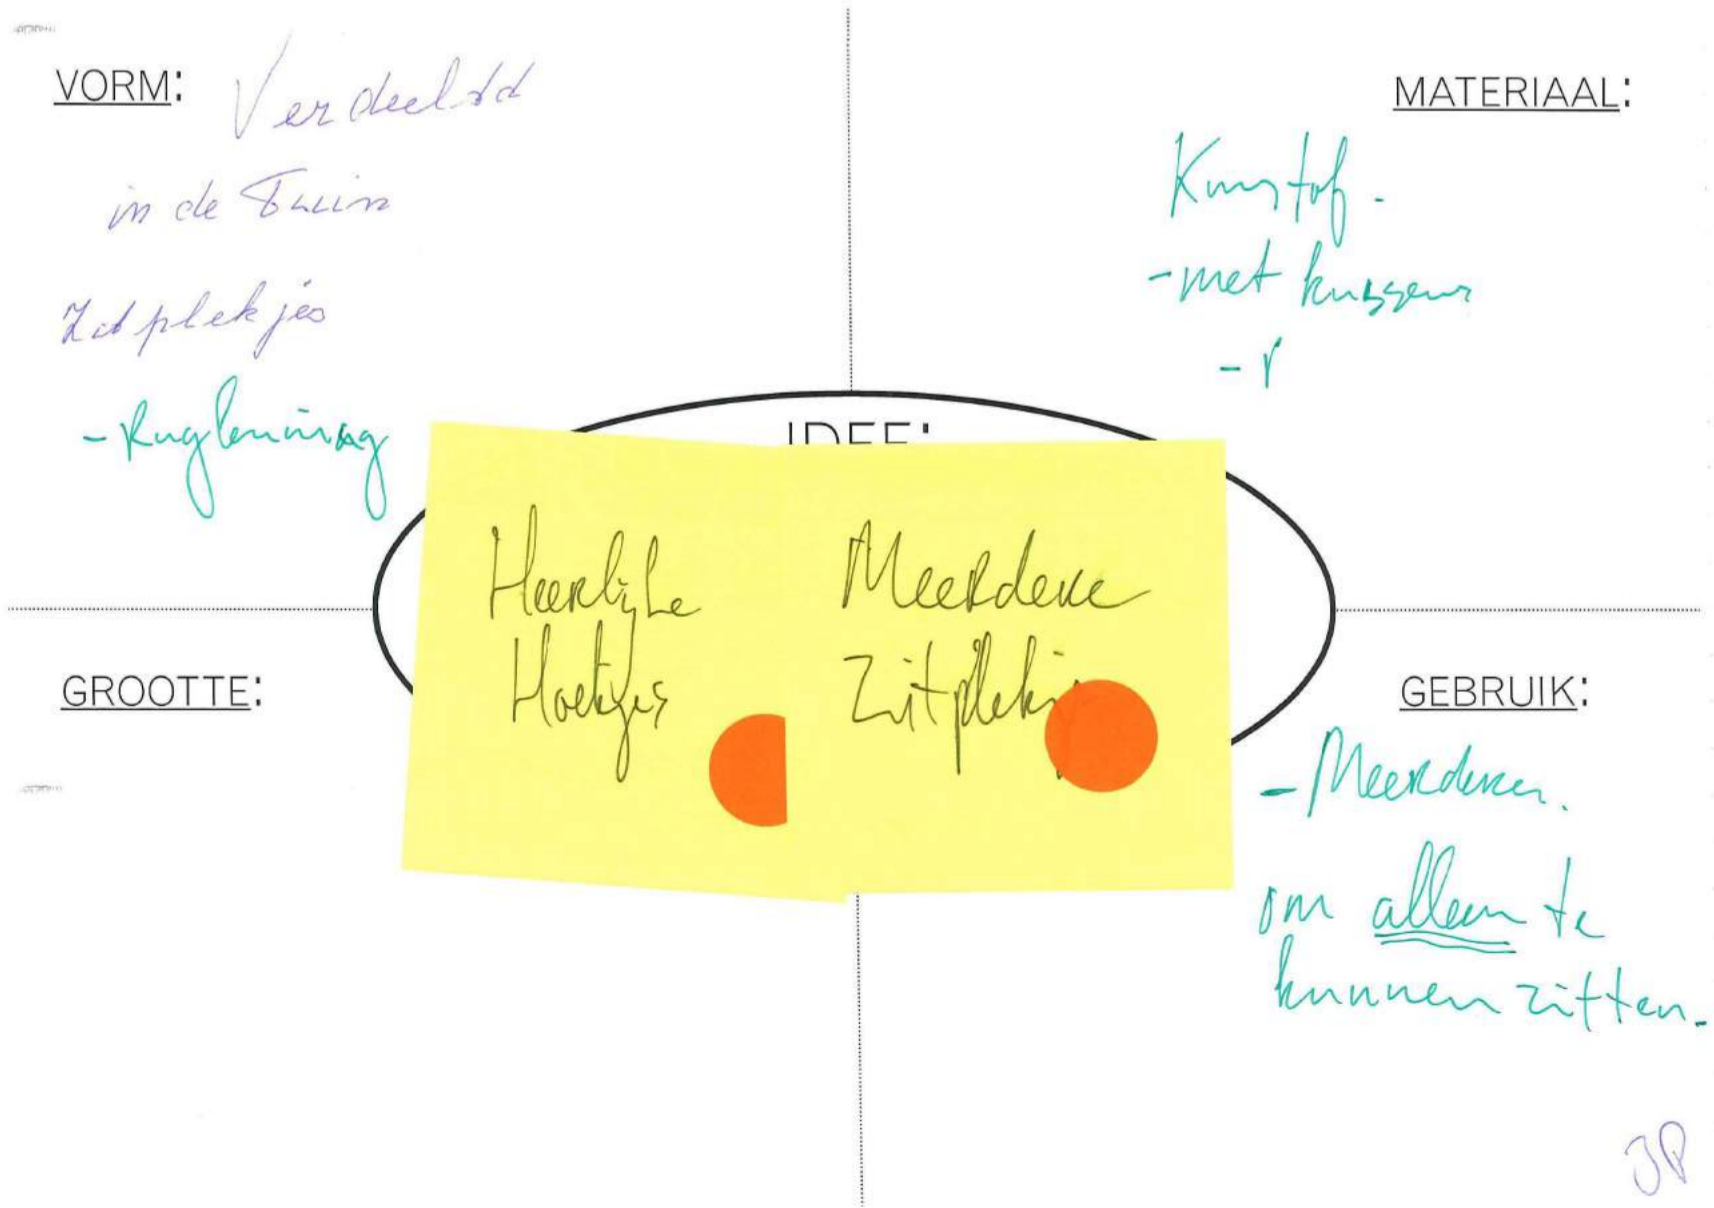 VORM: Verdeeld
in de Tuin
Zitplekjes
- Rugleuning
MATERIAAL:
Kunstof.
- met kussens
- r
IDEE:
Heerlijke
Hoekjes
Meerdere
Zitplekj
GROOTTE:
GEBRUIK:
- Meerderen.
om alleen te
kunnen zitten.
JP